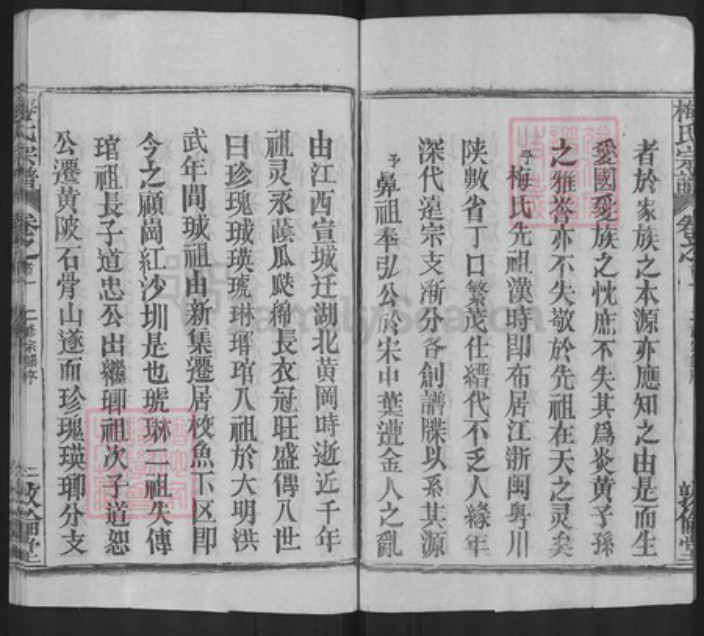 梅氏宗譜
卷之首一
敦倫堂
者於家族之本源亦應知之由是而生
愛國愛族之忱庶不失其為炎黄子孫
之雅誉亦不失敬於先祖在天之灵矣
予梅氏先祖漢時即布居江浙闽粤川
陕数省丁口繁茂仕縉代不乏人緣年
深代遠宗支漸分各創譜牒以系其源
予鼻祖奉弘公於宋中葉遭金人之亂
由江西宣城迁湖北黄岡時逝近千年
祖灵永蔭瓜瓞綿長衣冠旺盛傳八世
曰珍瑰珹瑛琥琳瑻琯八祖於大明洪
武年間珹祖由新集遷居校魚下区即
今之顧崗紅沙圳是也琥琳二祖失傳
琯祖長子道忠公出繼瑯祖次子道恕
公遷黄陂石骨山遂而珍瑰瑛瑯分支
梅氏宗譜
卷之首一
二修宗譜序
二
敦倫堂
FamilySearch